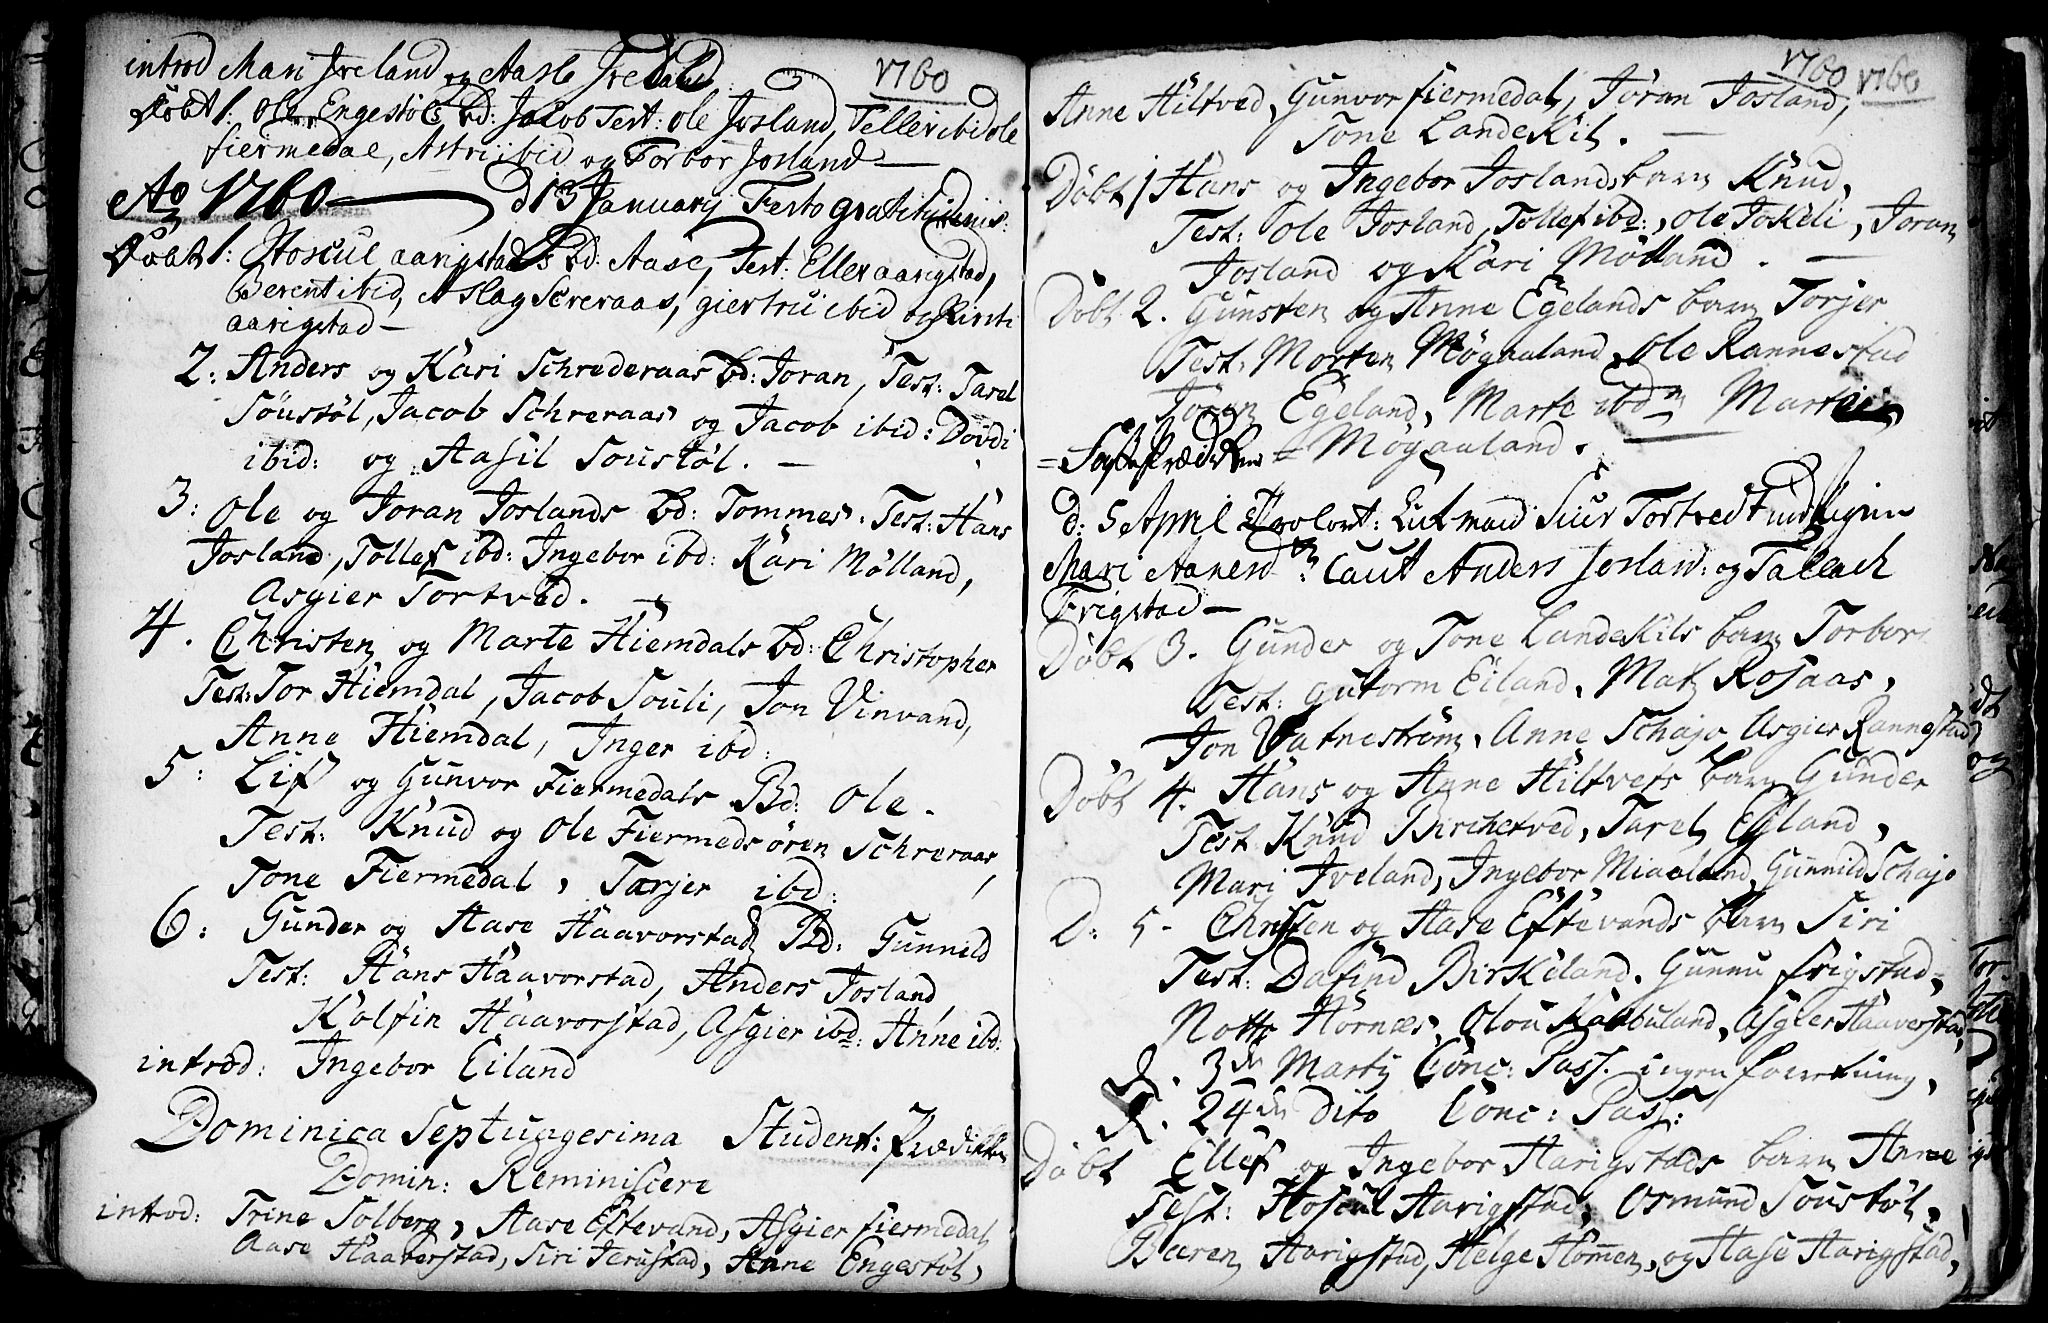 introd Mari Iveland og Aasle Iveland
1760
Döbt 1: Ole Engestöls bd: Jacob Test: Ole Josland, Tellev ibid Ole
fiermedal, Astri ibid og Torbor Josland —
Ao 1760 — d 13 January Festo gratitudinis:
Döbt 1: Hoscul aarigstads bd: Aase, Test: Ellev aarigstad,
Berent ibid, Aslag Screraas, giertru ibid og Kirsti
aarigstad —
2: Anders og Kari Schrederaas bd: Joran, Test: Tarel
Söustöl, Jacob Schreraas og Jacob ibid: Dövdi
ibid: og Aasil Soustöl. —
3: Ole og Joran Joslands bd: Tommes. Test: Hans
Josland, Tollef ibd: Ingebor ibd: Kari Mölland,
Asgier Tortved. —
4. Christen og Marte Hiemdals bd: Christopher
Test: Tor Hiemdal, Jacob Souli, Jon Vinvand,
Anne Hiemdal, Inger ibd:
5: Lif og Gunvor Fiermedals Bd: Ole.
Test: Knud og Ole Fiermedsören Schreraas,
Tone Fiermedal, Tarjer ibd:
6: Gunder og Aase Haavorstad Bd: Gunneld
Test: Hans Haavorstad, Anders Josland
Kolfin Haavorstad, Asgier ibd: Anne ibd:
introd: Ingebor Eiland
Dominica Septuagesima Student: Prædikken
Domin: Reminiscere
introd: Trine Solberg, Aase Eftevand, Asgier fiermedal
Aase Haaverstad, Siri Ierustad, Anne Engestöl,
1760 1760
Anne Hiltved, Gunvor fiermedal, Joran Josland,
Tone Landekil. —
Döbt 1 Hans og Ingebor Joslands barn Knud,
Test: Ole Josland, Tollef ibd:, Ole Jokeli, Joran
Josland og Kari Mölland. —
Döbt 2. Gunsten og Anne Egelands barn Torjer
Test: Morten Mögaaland, Ole Rannestad
Joran Egeland, Marte ibdn Marte
= = Mögaaland.
d: 5 April Trolovt: Siur Tortved
Mari Caut Anders Josland: og Tallach
Frigstad —
Döbt 3. Gunder og Tone Landekils barn Torbor
Test: Gutorm Eiland, Matz Rosaas,
Jon Vatneström, Anne Schajo Asgier Rannestad
Döbt 4. Hans og Anne Hiltvets barn Gunder
Test Knud Birchetved, Tarel Egland,
Mari Iveland, Ingebor Miaeland, Gunnild Schajo
D: 5. Christen og Aase Eftevands barn Siri
Test: Dafind Birkeland. Gunnu frigstad,
Notte Hornæs, Olou Kaabuland, Asgier Haaverstad,
D. 3de Marty Conc: Pass. ingen forretning,
D. 24de Dito Conc: Pass:
Döbt Ellef og Ingebor Aarigstads barn Anne
Test: Hoscul Aarigstad, Osmund Soustöl,
Bæren Aarigstad, Helge Homen, og Aase Aarigstad,